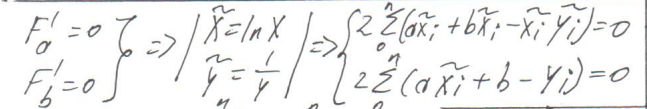 F'a = 0
F'b = 0 } => | x̃ = ln x
ỹ = 1/y | => { 2 Σ₀ⁿ (ax̃ᵢ + bx̃ᵢ - x̃ᵢ ỹᵢ) = 0
2 Σⁿ (a x̃ᵢ + b - yᵢ) = 0